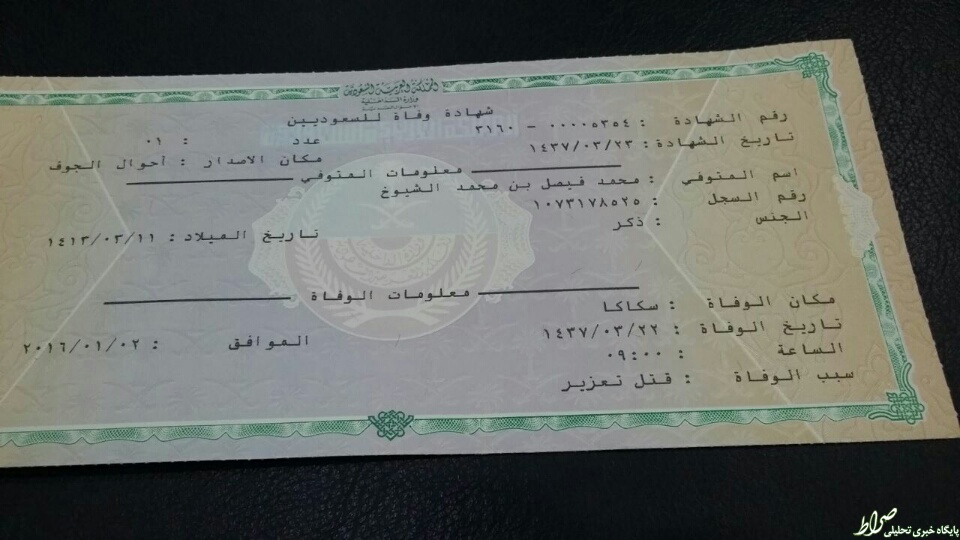 المملكة العربية السعودية
وزارة الداخلية
شهادة وفاة للسعوديين
رقم الشهادة : ٠٠٠٠٥٣٥٤ - ٣١٦٠
عدد : ٠١
تاريخ الشهادة : ١٤٣٧/٠٣/٢٣
مكان الاصدار : أحوال الجوف
معلومات المتوفي
اسم المتوفي : محمد فيصل بن محمد الشيوخ
رقم السجل : ١٠٧٣١٧٨٥٢٥
الجنس : ذكر
تاريخ الميلاد : ١٤١٣/٠٣/١١
معلومات الوفاة
مكان الوفاة : سكاكا
تاريخ الوفاة : ١٤٣٧/٠٣/٢٢
الموافق : ٢٠١٦/٠١/٠٢
الساعة : ٠٩:٠٠
سبب الوفاة : قتل تعزير
صراط
پایگاه خبری تحلیلی